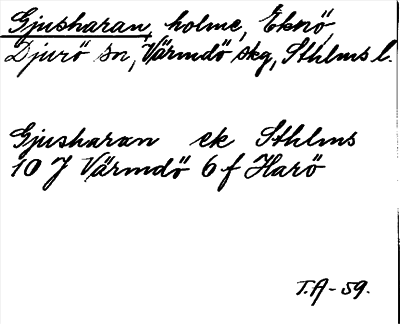 Gjusharan, holme, Eknö,
Djurö sn, Värmdö skg, Sthlms l.
Gjusharan ek Sthlms
10 J Värmdö 6 f Harö
T.A-59.